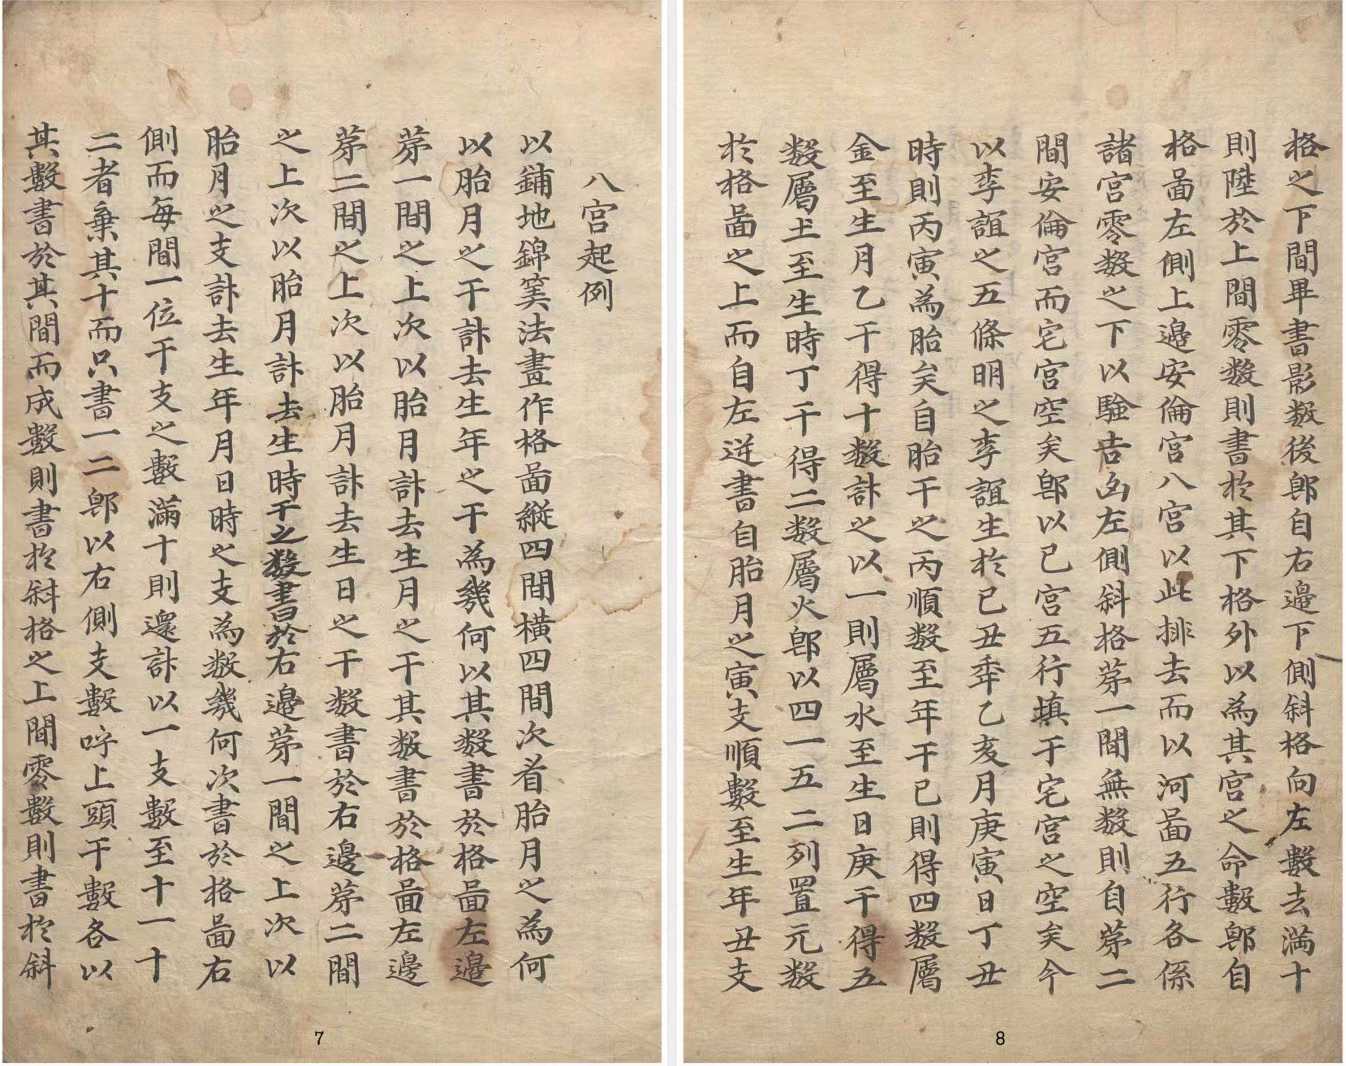 八宮起例
以鋪地錦筭法畫作格啚縱四間橫四間次看胎月之為何
以胎月之干計去生年之干為幾何以其数書於格啚左邊
苐一間之上次以胎月計去生月之干其数書於格啚左邊
苐二間之上次以胎月計去生日之干数書於右邊苐二間
之上次以胎月計去生時干之数書於右邊苐一間之上次以
胎月之支計去生年月日時之支為数幾何次書於格啚右
側而每間一位干支之數滿十則還計以一支數至十一十
二者棄其十而只書一二郎以右側支數呼上頭干數各以
其數書於其間而成數則書於斜格之上間零數則書於斜
7
格之下間畢書影数後郎自右邊下側斜格向左數去滿十
則陞於上間零数則書於其下格外以為其宮之命數郎自
格啚左側上邊安倫宮八宮以此排去而以河啚五行各係
諸宮零数之下以驗吉凶左側斜格苐一間無数則自苐二
間安倫宮而宅宮空矣郎以已宮五行填于宅宮之空矣今
以李誼之五條明之李誼生於己丑年乙亥月庚寅日丁丑
時則丙寅為胎矣自胎干之丙順数至年干已則得四数屬
金至生月乙干得十数計之以一則屬水至生日庚干得五
数屬土至生時丁干得二数屬火郎以四一五二列置元数
於格啚之上而自左逆書自胎月之寅支順數至生年丑支
8